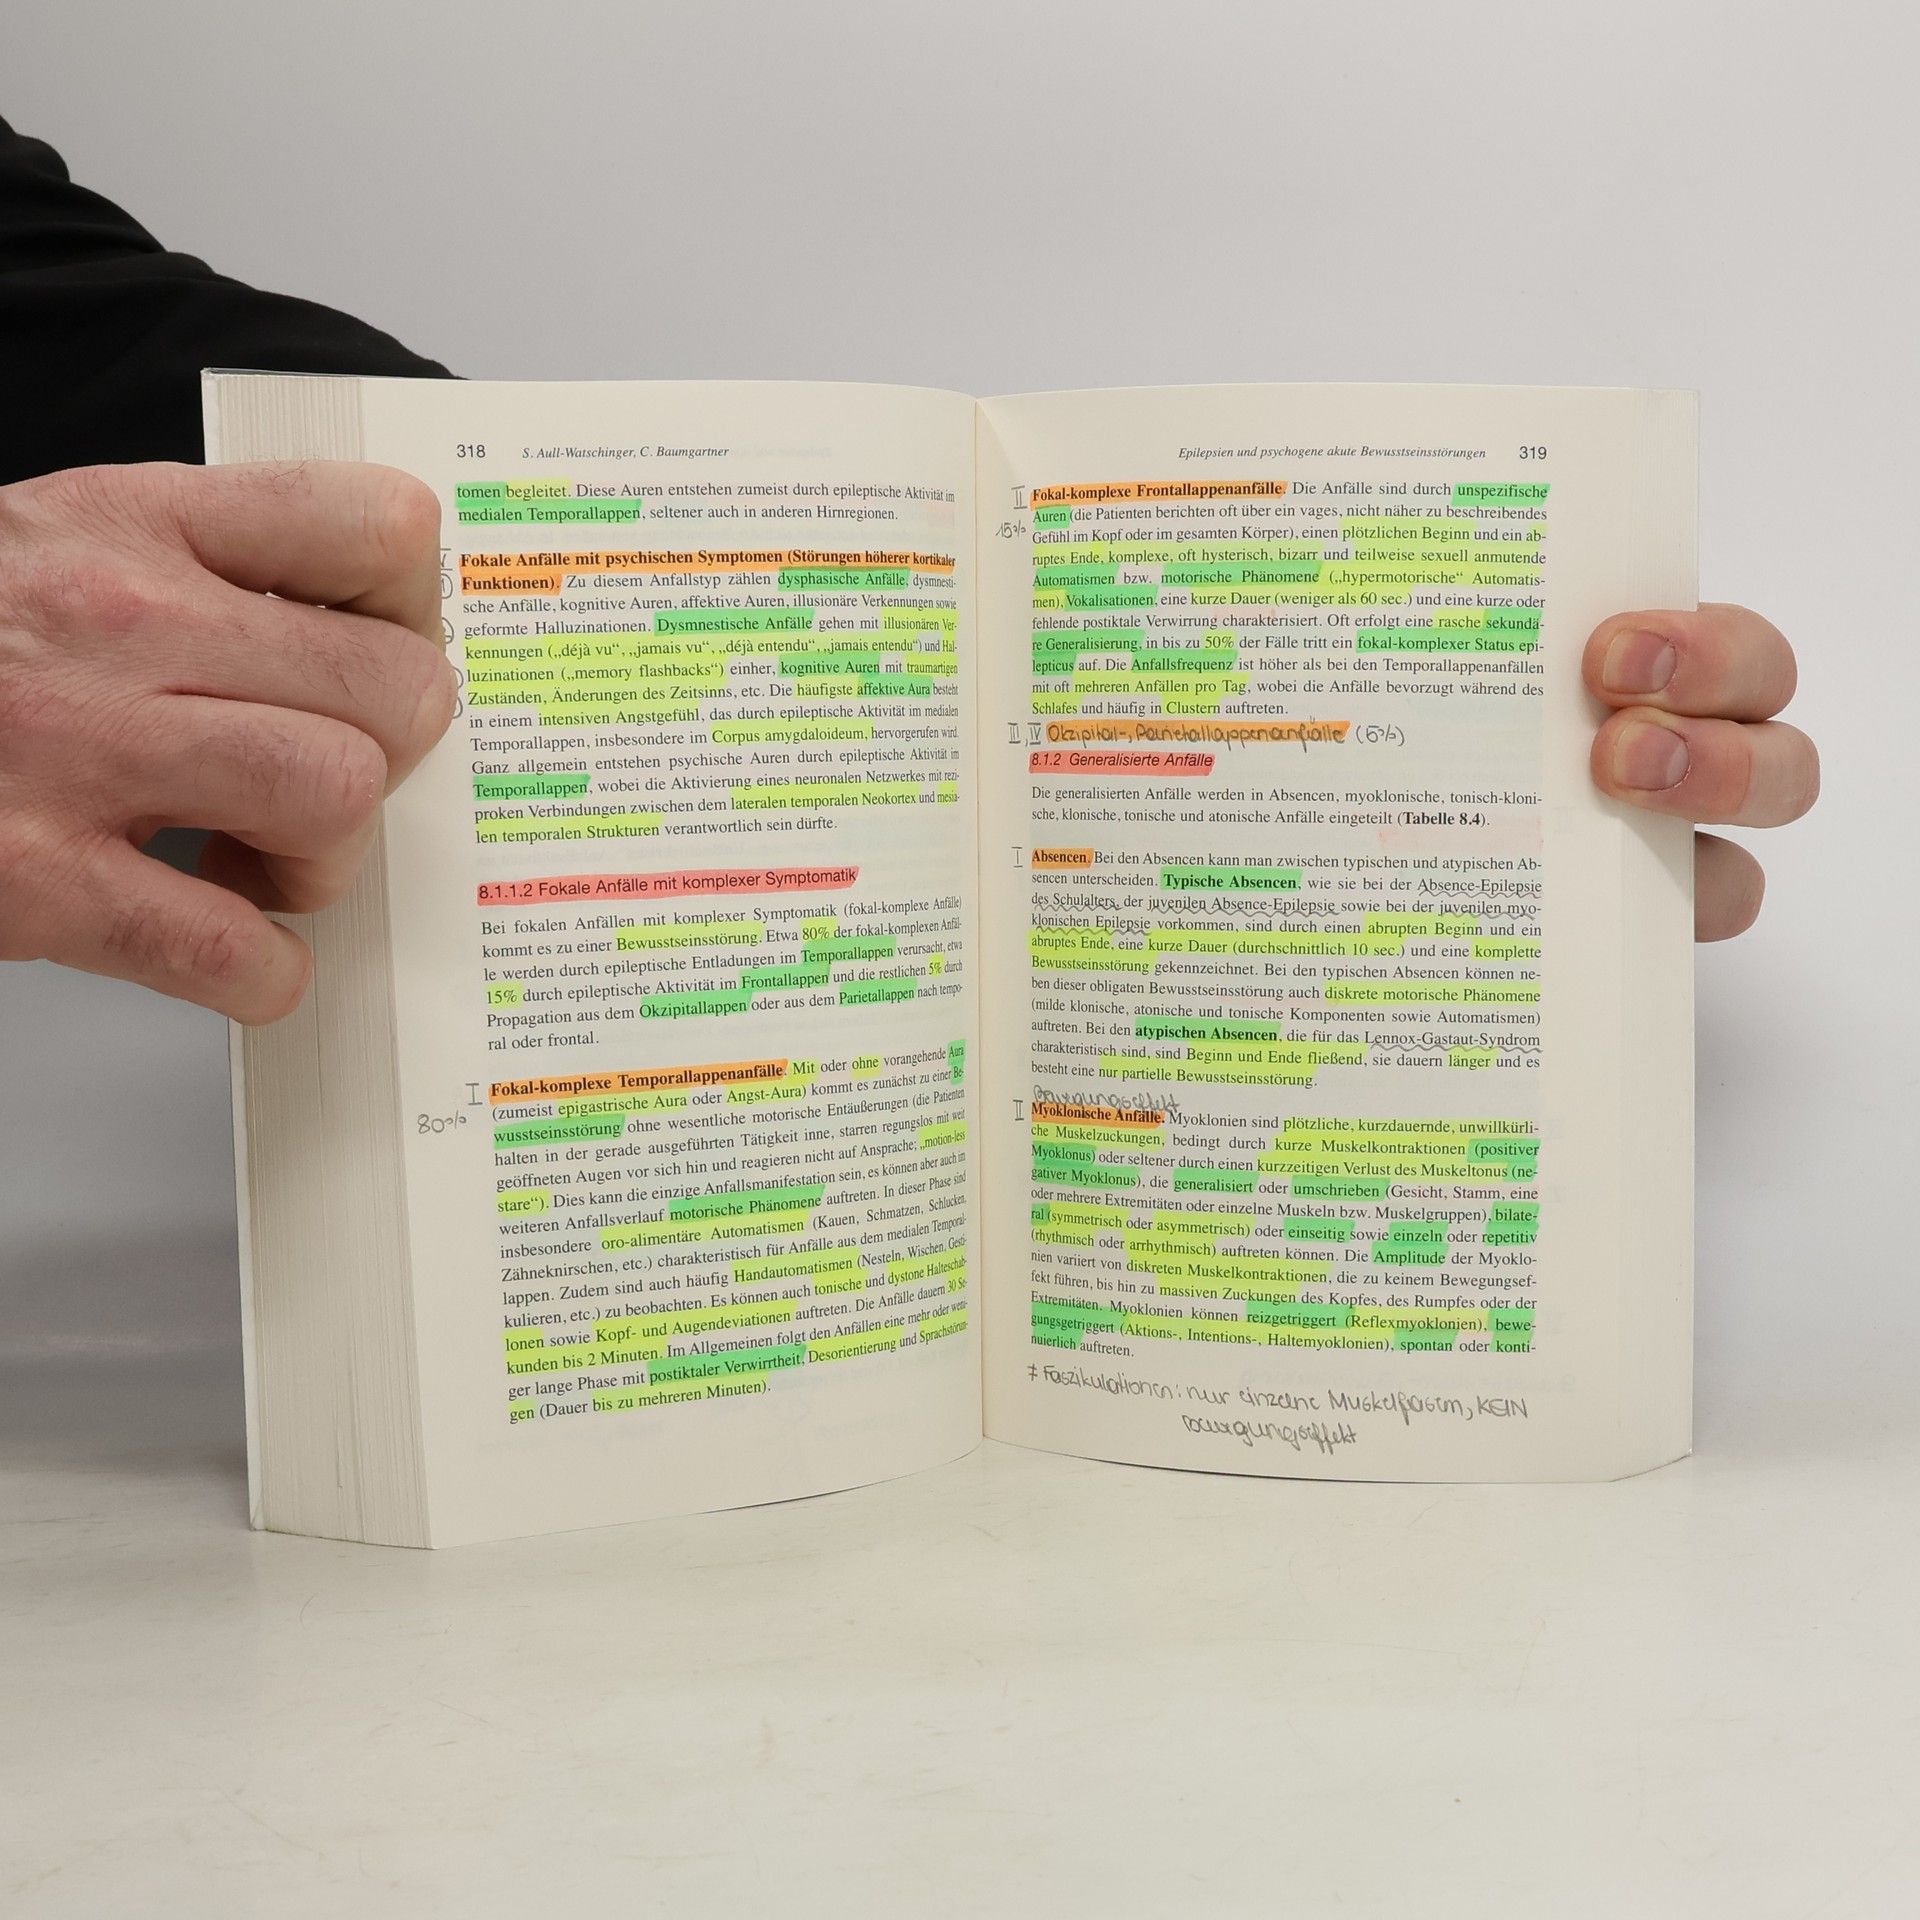 318 S. Aull-Watschinger, C. Baumgartner
tomen begleitet. Diese Auren entstehen zumeist durch epileptische Aktivität im
medialen Temporallappen, seltener auch in anderen Hirnregionen.
Fokale Anfälle mit psychischen Symptomen (Störungen höherer kortikaler
Funktionen). Zu diesem Anfallstyp zählen dysphasische Anfälle, dysmnesti-
sche Anfälle, kognitive Auren, affektive Auren, illusionäre Verkennungen sowie
geformte Halluzinationen. Dysmnestische Anfälle gehen mit illusionären Ver-
kennungen („déjà vu“, „jamais vu“, „déjà entendu“, „jamais entendu“) und Hal-
luzinationen („memory flashbacks“) einher, kognitive Auren mit traumartigen
Zuständen, Änderungen des Zeitsinns, etc. Die häufigste affektive Aura besteht
in einem intensiven Angstgefühl, das durch epileptische Aktivität im medialen
Temporallappen, insbesondere im Corpus amygdaloideum, hervorgerufen wird.
Ganz allgemein entstehen psychische Auren durch epileptische Aktivität im
Temporallappen, wobei die Aktivierung eines neuronalen Netzwerkes mit rezi-
proken Verbindungen zwischen dem lateralen temporalen Neokortex und mesia-
len temporalen Strukturen verantwortlich sein dürfte.
8.1.1.2 Fokale Anfälle mit komplexer Symptomatik
Bei fokalen Anfällen mit komplexer Symptomatik (fokal-komplexe Anfälle)
kommt es zu einer Bewusstseinsstörung. Etwa 80% der fokal-komplexen Anfäl-
le werden durch epileptische Entladungen im Temporallappen verursacht, etwa
15% durch epileptische Aktivität im Frontallappen und die restlichen 5% durch
Propagation aus dem Okzipitallappen oder aus dem Parietallappen nach tempo-
ral oder frontal.
I Fokal-komplexe Temporallappenanfälle. Mit oder ohne vorangehende Aura
80% (zumeist epigastrische Aura oder Angst-Aura) kommt es zunächst zu einer Be-
wusstseinsstörung ohne wesentliche motorische Entäußerungen (die Patienten
halten in der gerade ausgeführten Tätigkeit inne, starren regungslos mit weit
geöffneten Augen vor sich hin und reagieren nicht auf Ansprache; „motion-less
stare“). Dies kann die einzige Anfallsmanifestation sein, es können aber auch im
weiteren Anfallsverlauf motorische Phänomene auftreten. In dieser Phase sind
insbesondere oro-alimentäre Automatismen (Kauen, Schmatzen, Schlucken,
Zähneknirschen, etc.) charakteristisch für Anfälle aus dem medialen Temporal-
lappen. Zudem sind auch häufig Handautomatismen (Nesteln, Wischen, Gesti-
kulieren, etc.) zu beobachten. Es können auch tonische und dystone Halteschab-
lonen sowie Kopf- und Augendeviationen auftreten. Die Anfälle dauern 30 Se-
kunden bis 2 Minuten. Im Allgemeinen folgt den Anfällen eine mehr oder weni-
ger lange Phase mit postiktaler Verwirrtheit, Desorientierung und Sprachstörun-
gen (Dauer bis zu mehreren Minuten).
Epilepsien und psychogene akute Bewusstseinsstörungen 319
II Fokal-komplexe Frontallappenanfälle. Die Anfälle sind durch unspezifische
15% Auren (die Patienten berichten oft über ein vages, nicht näher zu beschreibendes
Gefühl im Kopf oder im gesamten Körper), einen plötzlichen Beginn und ein ab-
ruptes Ende, komplexe, oft hysterisch, bizarr und teilweise sexuell anmutende
Automatismen bzw. motorische Phänomene („hypermotorische“ Automatis-
men), Vokalisationen, eine kurze Dauer (weniger als 60 sec.) und eine kurze oder
fehlende postiktale Verwirrung charakterisiert. Oft erfolgt eine rasche sekundä-
re Generalisierung, in bis zu 50% der Fälle tritt ein fokal-komplexer Status epi-
lepticus auf. Die Anfallsfrequenz ist höher als bei den Temporallappenanfällen
mit oft mehreren Anfällen pro Tag, wobei die Anfälle bevorzugt während des
Schlafes und häufig in Clustern auftreten.
III, IV Okzipital-, Parietallappenanfälle (5%)
8.1.2 Generalisierte Anfälle
Die generalisierten Anfälle werden in Absencen, myoklonische, tonisch-kloni-
sche, klonische, tonische und atonische Anfälle eingeteilt (Tabelle 8.4).
I Absencen. Bei den Absencen kann man zwischen typischen und atypischen Ab-
sencen unterscheiden. Typische Absencen, wie sie bei der Absence-Epilepsie
des Schulalters, der juvenilen Absence-Epilepsie sowie bei der juvenilen myo-
klonischen Epilepsie vorkommen, sind durch einen abrupten Beginn und ein
abruptes Ende, eine kurze Dauer (durchschnittlich 10 sec.) und eine komplette
Bewusstseinsstörung gekennzeichnet. Bei den typischen Absencen können ne-
ben dieser obligaten Bewusstseinsstörung auch diskrete motorische Phänomene
(milde klonische, atonische und tonische Komponenten sowie Automatismen)
auftreten. Bei den atypischen Absencen, die für das Lennox-Gastaut-Syndrom
charakteristisch sind, sind Beginn und Ende fließend, sie dauern länger und es
besteht eine nur partielle Bewusstseinsstörung.
Bewegungseffekt
II Myoklonische Anfälle. Myoklonien sind plötzliche, kurzdauernde, unwillkürli-
che Muskelzuckungen, bedingt durch kurze Muskelkontraktionen (positiver
Myoklonus) oder seltener durch einen kurzzeitigen Verlust des Muskeltonus (ne-
gativer Myoklonus), die generalisiert oder umschrieben (Gesicht, Stamm, eine
oder mehrere Extremitäten oder einzelne Muskeln bzw. Muskelgruppen), bilate-
ral (symmetrisch oder asymmetrisch) oder einseitig sowie einzeln oder repetitiv
(rhythmisch oder arrhythmisch) auftreten können. Die Amplitude der Myoklo-
nien variiert von diskreten Muskelkontraktionen, die zu keinem Bewegungsef-
fekt führen, bis hin zu massiven Zuckungen des Kopfes, des Rumpfes oder der
Extremitäten. Myoklonien können reizgetriggert (Reflexmyoklonien), bewe-
gungsgetriggert (Aktions-, Intentions-, Haltemyoklonien), spontan oder konti-
nuierlich auftreten.
≠ Faszikulationen: nur einzelne Muskelfasern, KEIN
Bewegungseffekt